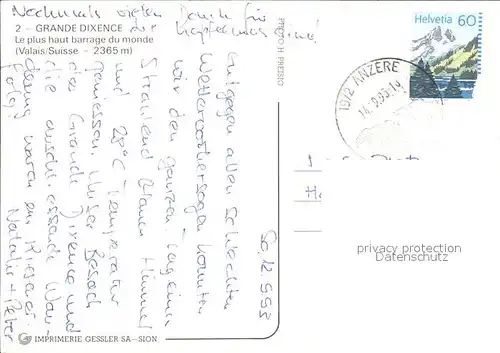 Nochmals vielen Dank für
2 - GRANDE DIXENCE
Le plus haut barrage du monde
(Valais/Suisse - 2365 m)
Helvetia 60
1972 ANZERE
PHOTO H. PREISIG
So, 12.9.93
Entgegen allen schlechten
Wettervorhersagen konnten
wir den ganzen Tag einen
strahlend blauen Himmel
und 28°C Temperatur
geniessen. Unser Besuch
der Grande Dixence und
die anschliessende Wan-
derung waren ein Riesener-
folg!
Natalie + Peter
privacy protection
Datenschutz
IMPRIMERIE GESSLER SA - SION